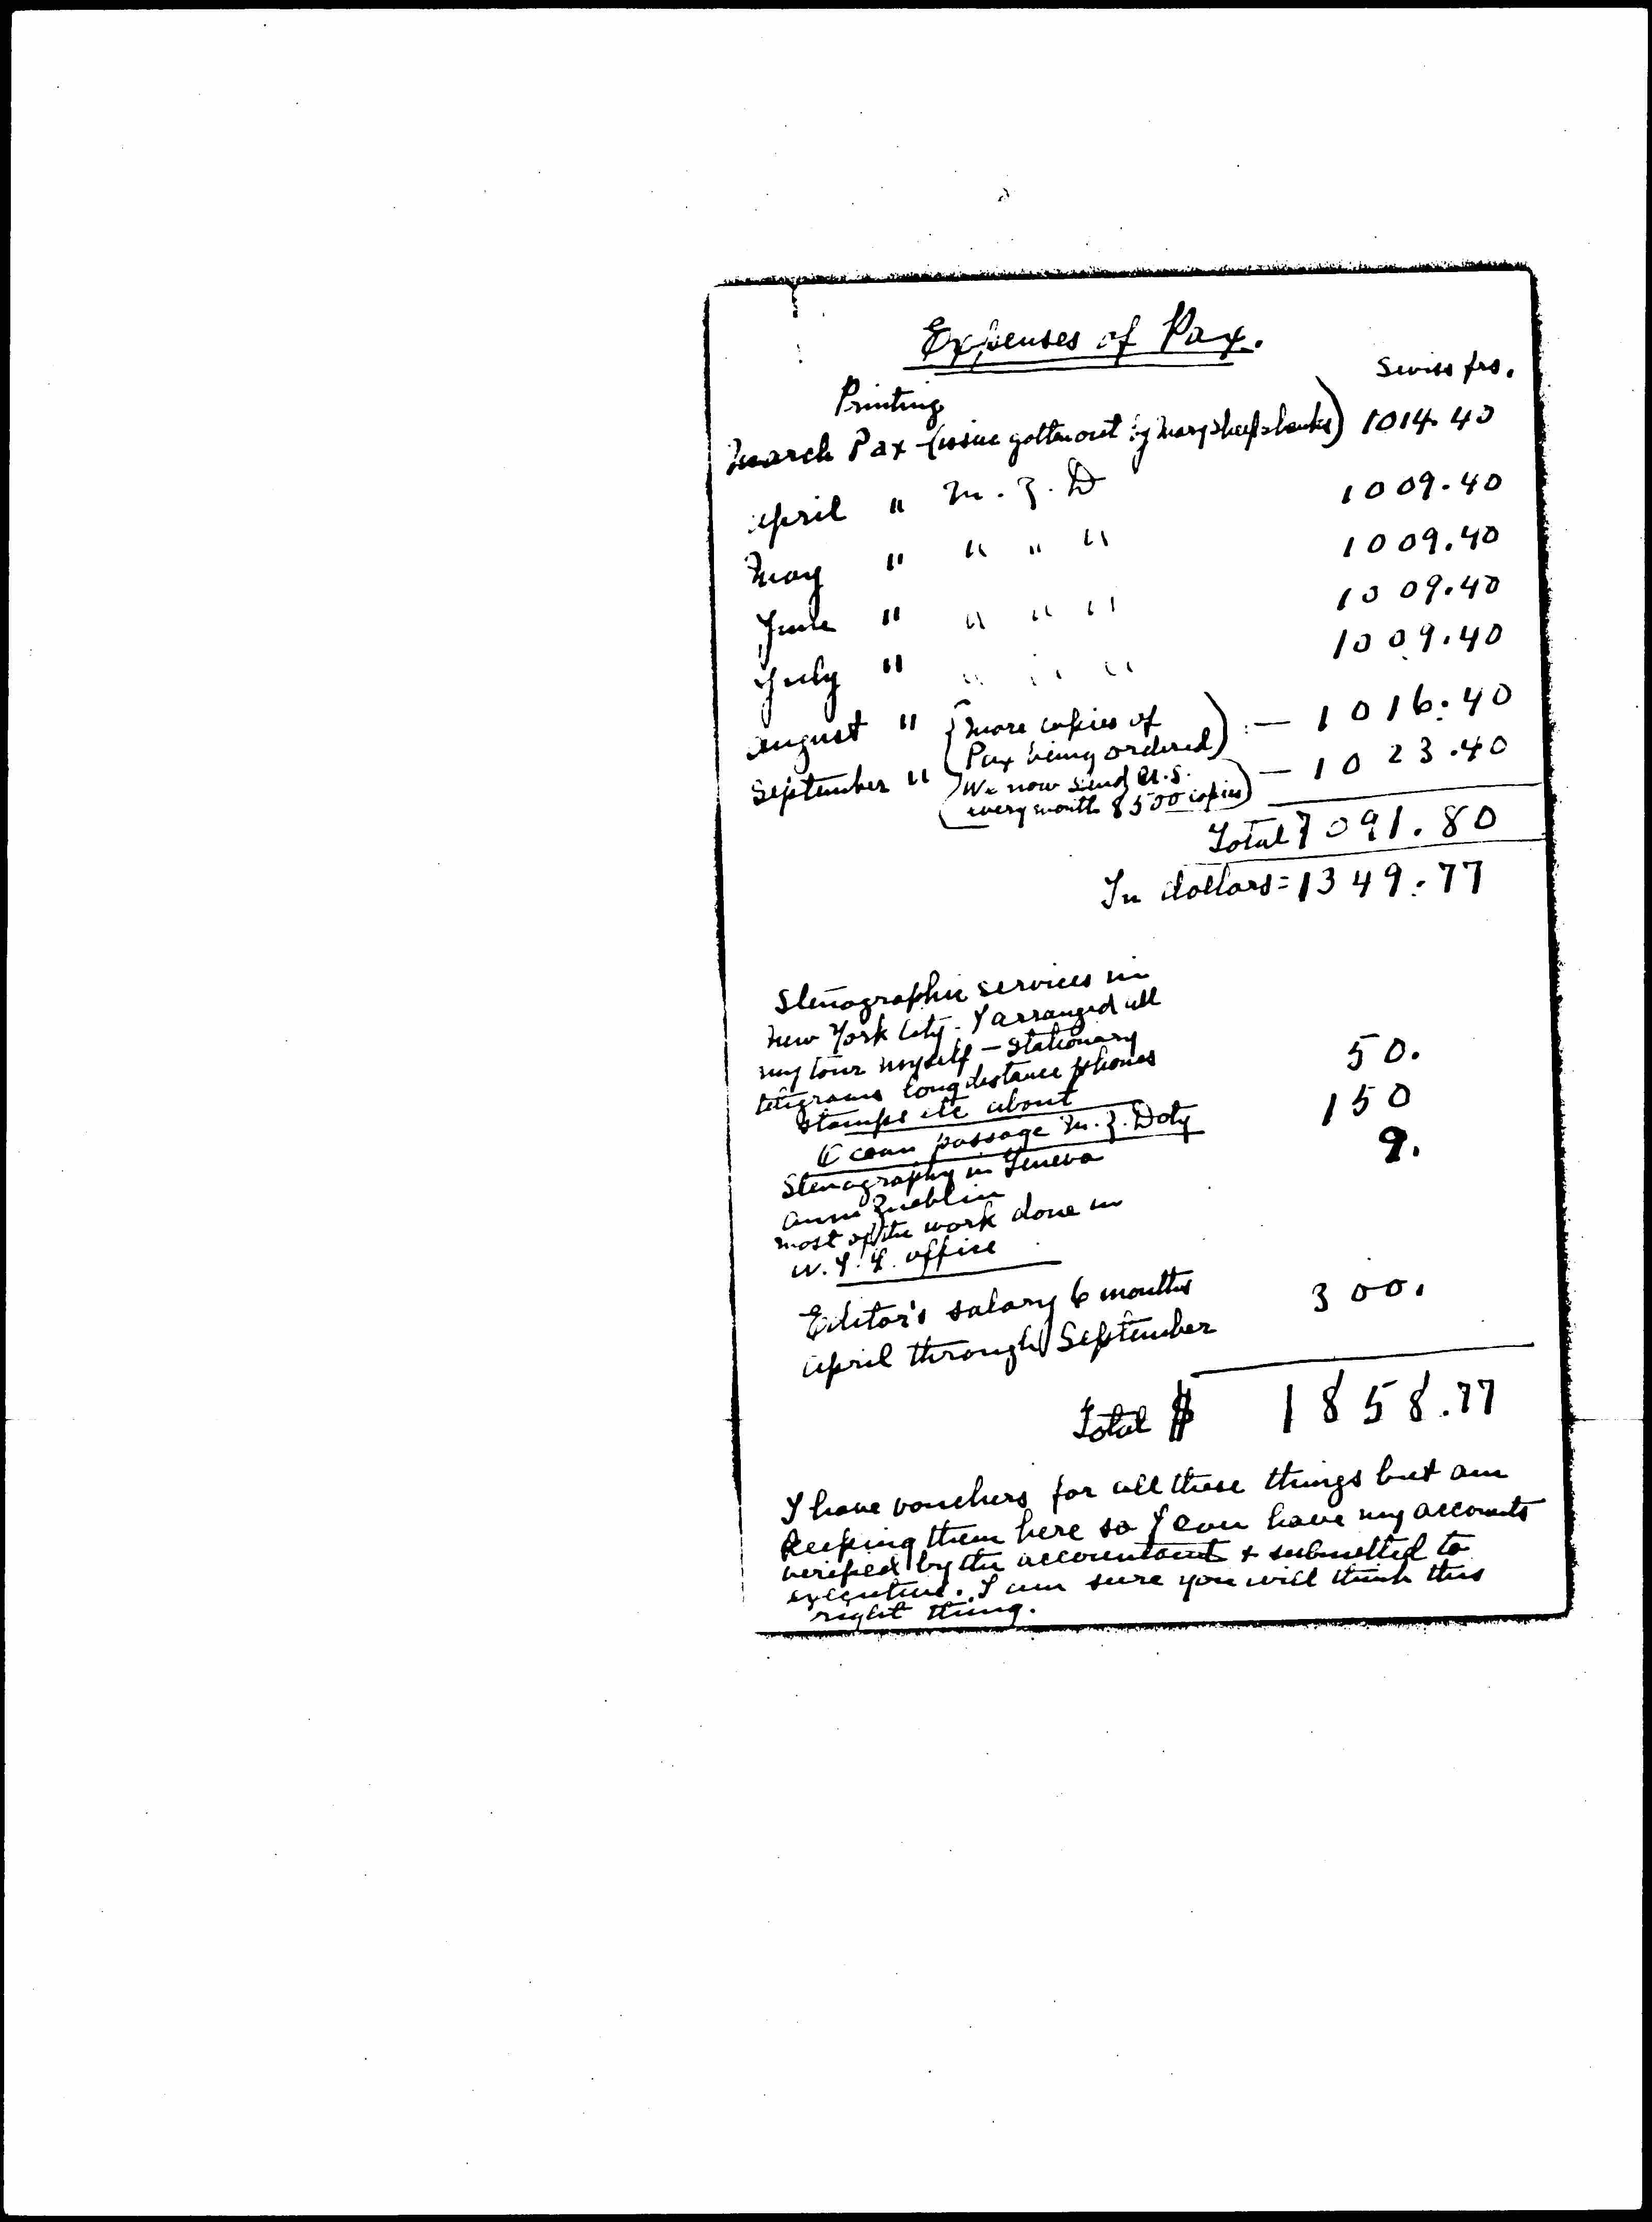 Expenses of Pax.
Swiss frs.
Printing
March Pax (issue gotten out by Mary Sheepshanks) 1014.40
April " M. Z. D 1009.40
May " " " " 1009.40
June " " " " 1009.40
July " " " " 1009.40
August " (more copies of — 1016.40
Pax being ordered)
September " (We now send U.S. — 1023.40
every month 8500 copies)
Total 7091.80
In dollars = 1349.77
Stenographic services in
New York City. I arranged all
my tour myself - stationary
telegrams long distance phones 50.
stamps etc about
Ocean passage M. Z. Doty 150
Stenography in Geneva 9.
Anne Zueblin
most of the work done in
W. I. L. office
Editor's salary 6 months 300.
April through September
Total $ 1858.77
I have vouchers for all these things but am
keeping them here so I can have my accounts
verified by the accountant + submitted to
executive. I am sure you will think this
right thing.